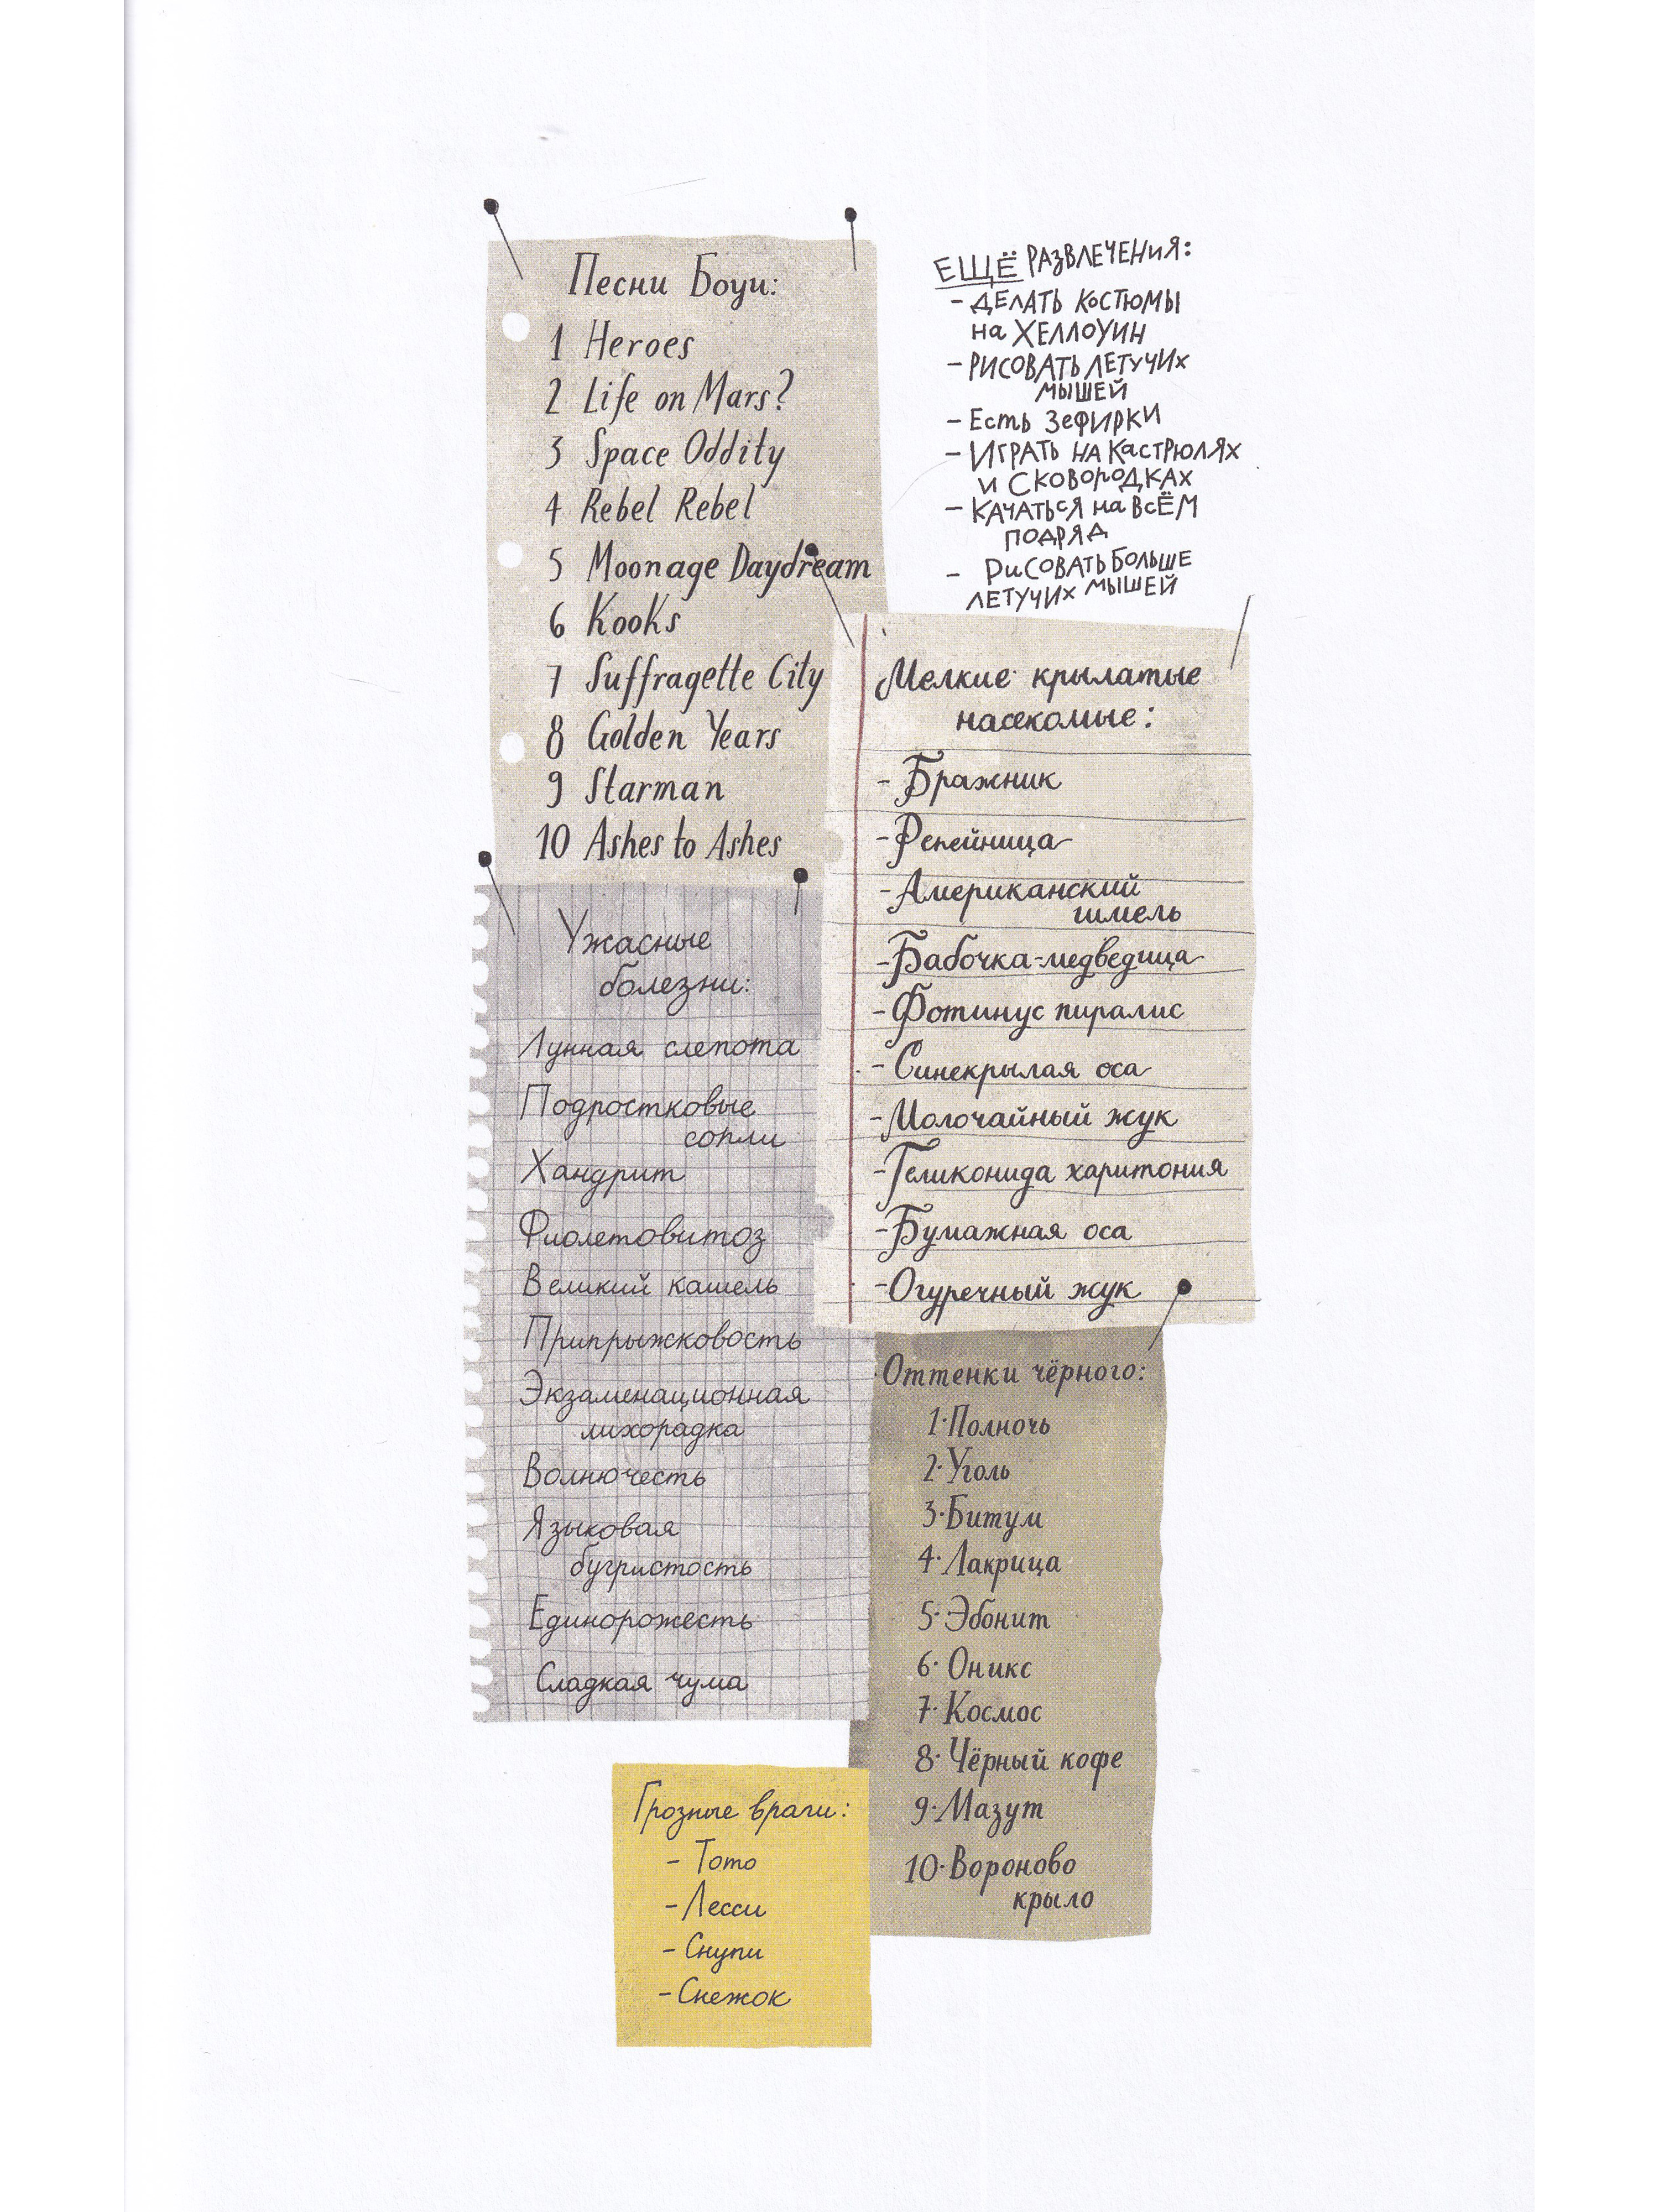 Песни Боуи:
1 Heroes
2 Life on Mars?
3 Space Oddity
4 Rebel Rebel
5 Moonage Daydream
6 Kooks
7 Suffragette City
8 Golden Years
9 Starman
10 Ashes to Ashes
ЕЩЁ РАЗВЛЕЧЕНИЯ:
- ДЕЛАТЬ КОСТЮМЫ
на ХЕЛЛОУИН
- РИСОВАТЬ ЛЕТУЧИХ
МЫШЕЙ
- Есть ЗЕФИРКИ
- ИГРАТЬ НА КАСТРЮЛЯХ
И СКОВОРОДКАХ
- КАЧАТЬСЯ на ВСЁМ
ПОДРЯД
- РИСОВАТЬ БОЛЬШЕ
ЛЕТУЧИХ МЫШЕЙ
Мелкие крылатые
насекомые:
- Бражник
- Репейница
- Американский
шмель
- Бабочка-медведица
- Фотинус пиралис
- Синекрылая оса
- Молочайный жук
- Геликонида харитония
- Бумажная оса
- Огуречный жук
Ужасные
болезни:
Лунная слепота
Подростковые
сопли
Хандрит
Фиолетовитоз
Великий кашель
Припрыжковость
Экзаменационная
лихорадка
Волнючесть
Языковая
бугристость
Единорожесть
Сладкая чума
Оттенки чёрного:
1· Полночь
2· Уголь
3· Битум
4· Лакрица
5· Эбонит
6· Оникс
7· Космос
8· Чёрный кофе
9· Мазут
10· Вороново
крыло
Грозные враги:
- Тото
- Лесси
- Снупи
- Снежок